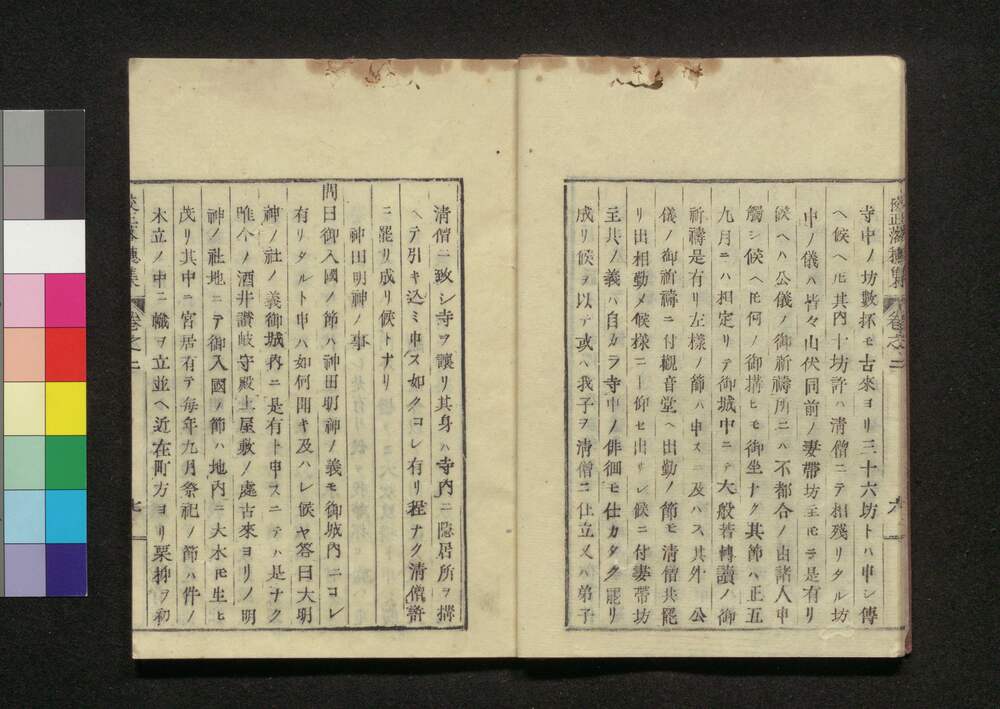 寺中ノ坊數抔モ古來ヨリ三十六坊トハ申シ傳
ヘ候ヘ𪜈其內十坊許ハ清僧ニテ相殘リタル坊
中ノ儀ハ皆々山伏同前ノ妻帶坊主モテ是有リ
候ヘハ公儀ノ御祈禱所ニハ不都合ノ由諸人申
觸シ候ヘ𪜈何ノ御搆ヒモ御坐ナク其節ハ正五
九月ニハ相定リテ御城中ニテ大般若轉讀ノ御
祈禱是有リ左樣ノ節ハ申スニ及ハス其外 公
儀ノ御祈禱ニ付觀音堂ヘ出勤ノ節モ清僧共罷
リ出相勤メ候樣ニト仰セ出サレ候ニ付妻帶坊
主共ノ義ハ自カラ寺中ノ俳徊モ仕カタク罷リ
成リ候ヲ以テ或ヘ我子ヲ清僧ニ仕立又ハ弟子
卷之二
六
清僧ニ致シ寺ヲ讓リ其身ハ寺內ニ隱居所ヲ搆
ヘテ引キ込ミ申ス如クコレ有リ程ナク清僧許
ニ罷リ成リ候トナリ
神田明神ノ事
問曰御入國ノ節ハ神田明神ノ義モ御城內ニコレ
有リタルト申ハ如何聞キ及ハレ候ヤ答曰大明
神ノ社ノ義御城內ニ是有ト申スニテハ是ナク
唯今ノ酒井讚岐守殿上屋敷ノ處古來ヨリノ明
神ノ社地ニテ御入國ノ節ハ地內ニ大木𪜈生ヒ
茂リ其中ニ宮居有テ每年九月祭祀ノ節ハ件ノ
木立ノ中ニ幟ヲ立並ヘ近在町方ヨリ栗抑ヲ初
卷之二
七